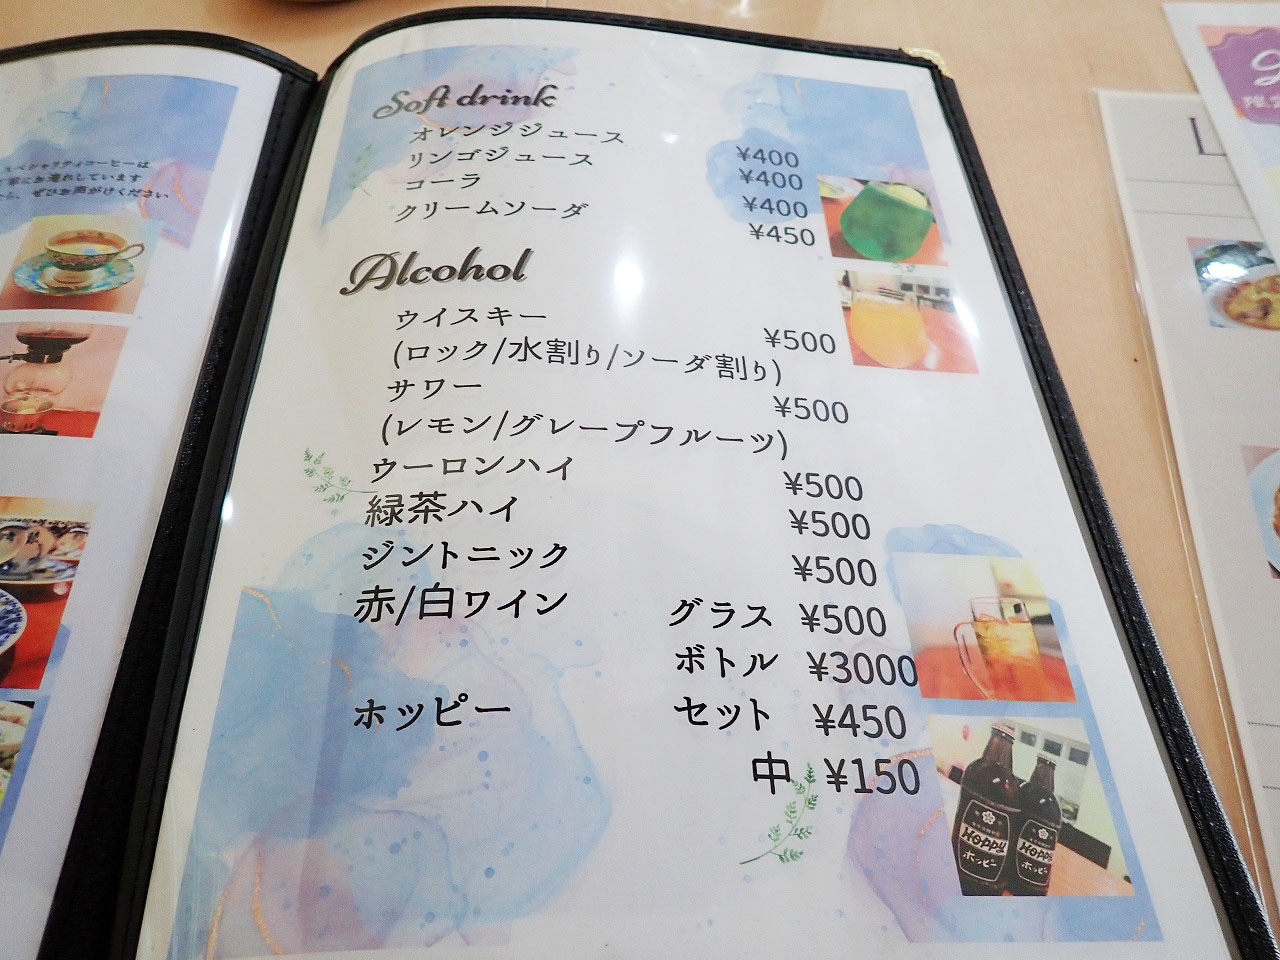 スペシャリティコーヒーは
ぜひお声がけください
Soft drink
オレンジジュース ¥400
リンゴジュース ¥400
コーラ ¥400
クリームソーダ ¥450
Alcohol
ウイスキー ¥500
(ロック/水割り/ソーダ割り)
サワー ¥500
(レモン/グレープフルーツ)
ウーロンハイ ¥500
緑茶ハイ ¥500
ジントニック ¥500
赤/白ワイン グラス ¥500
ボトル ¥3000
ホッピー セット ¥450
中 ¥150
Hoppy
ホッピー
Hoppy
ホッピー